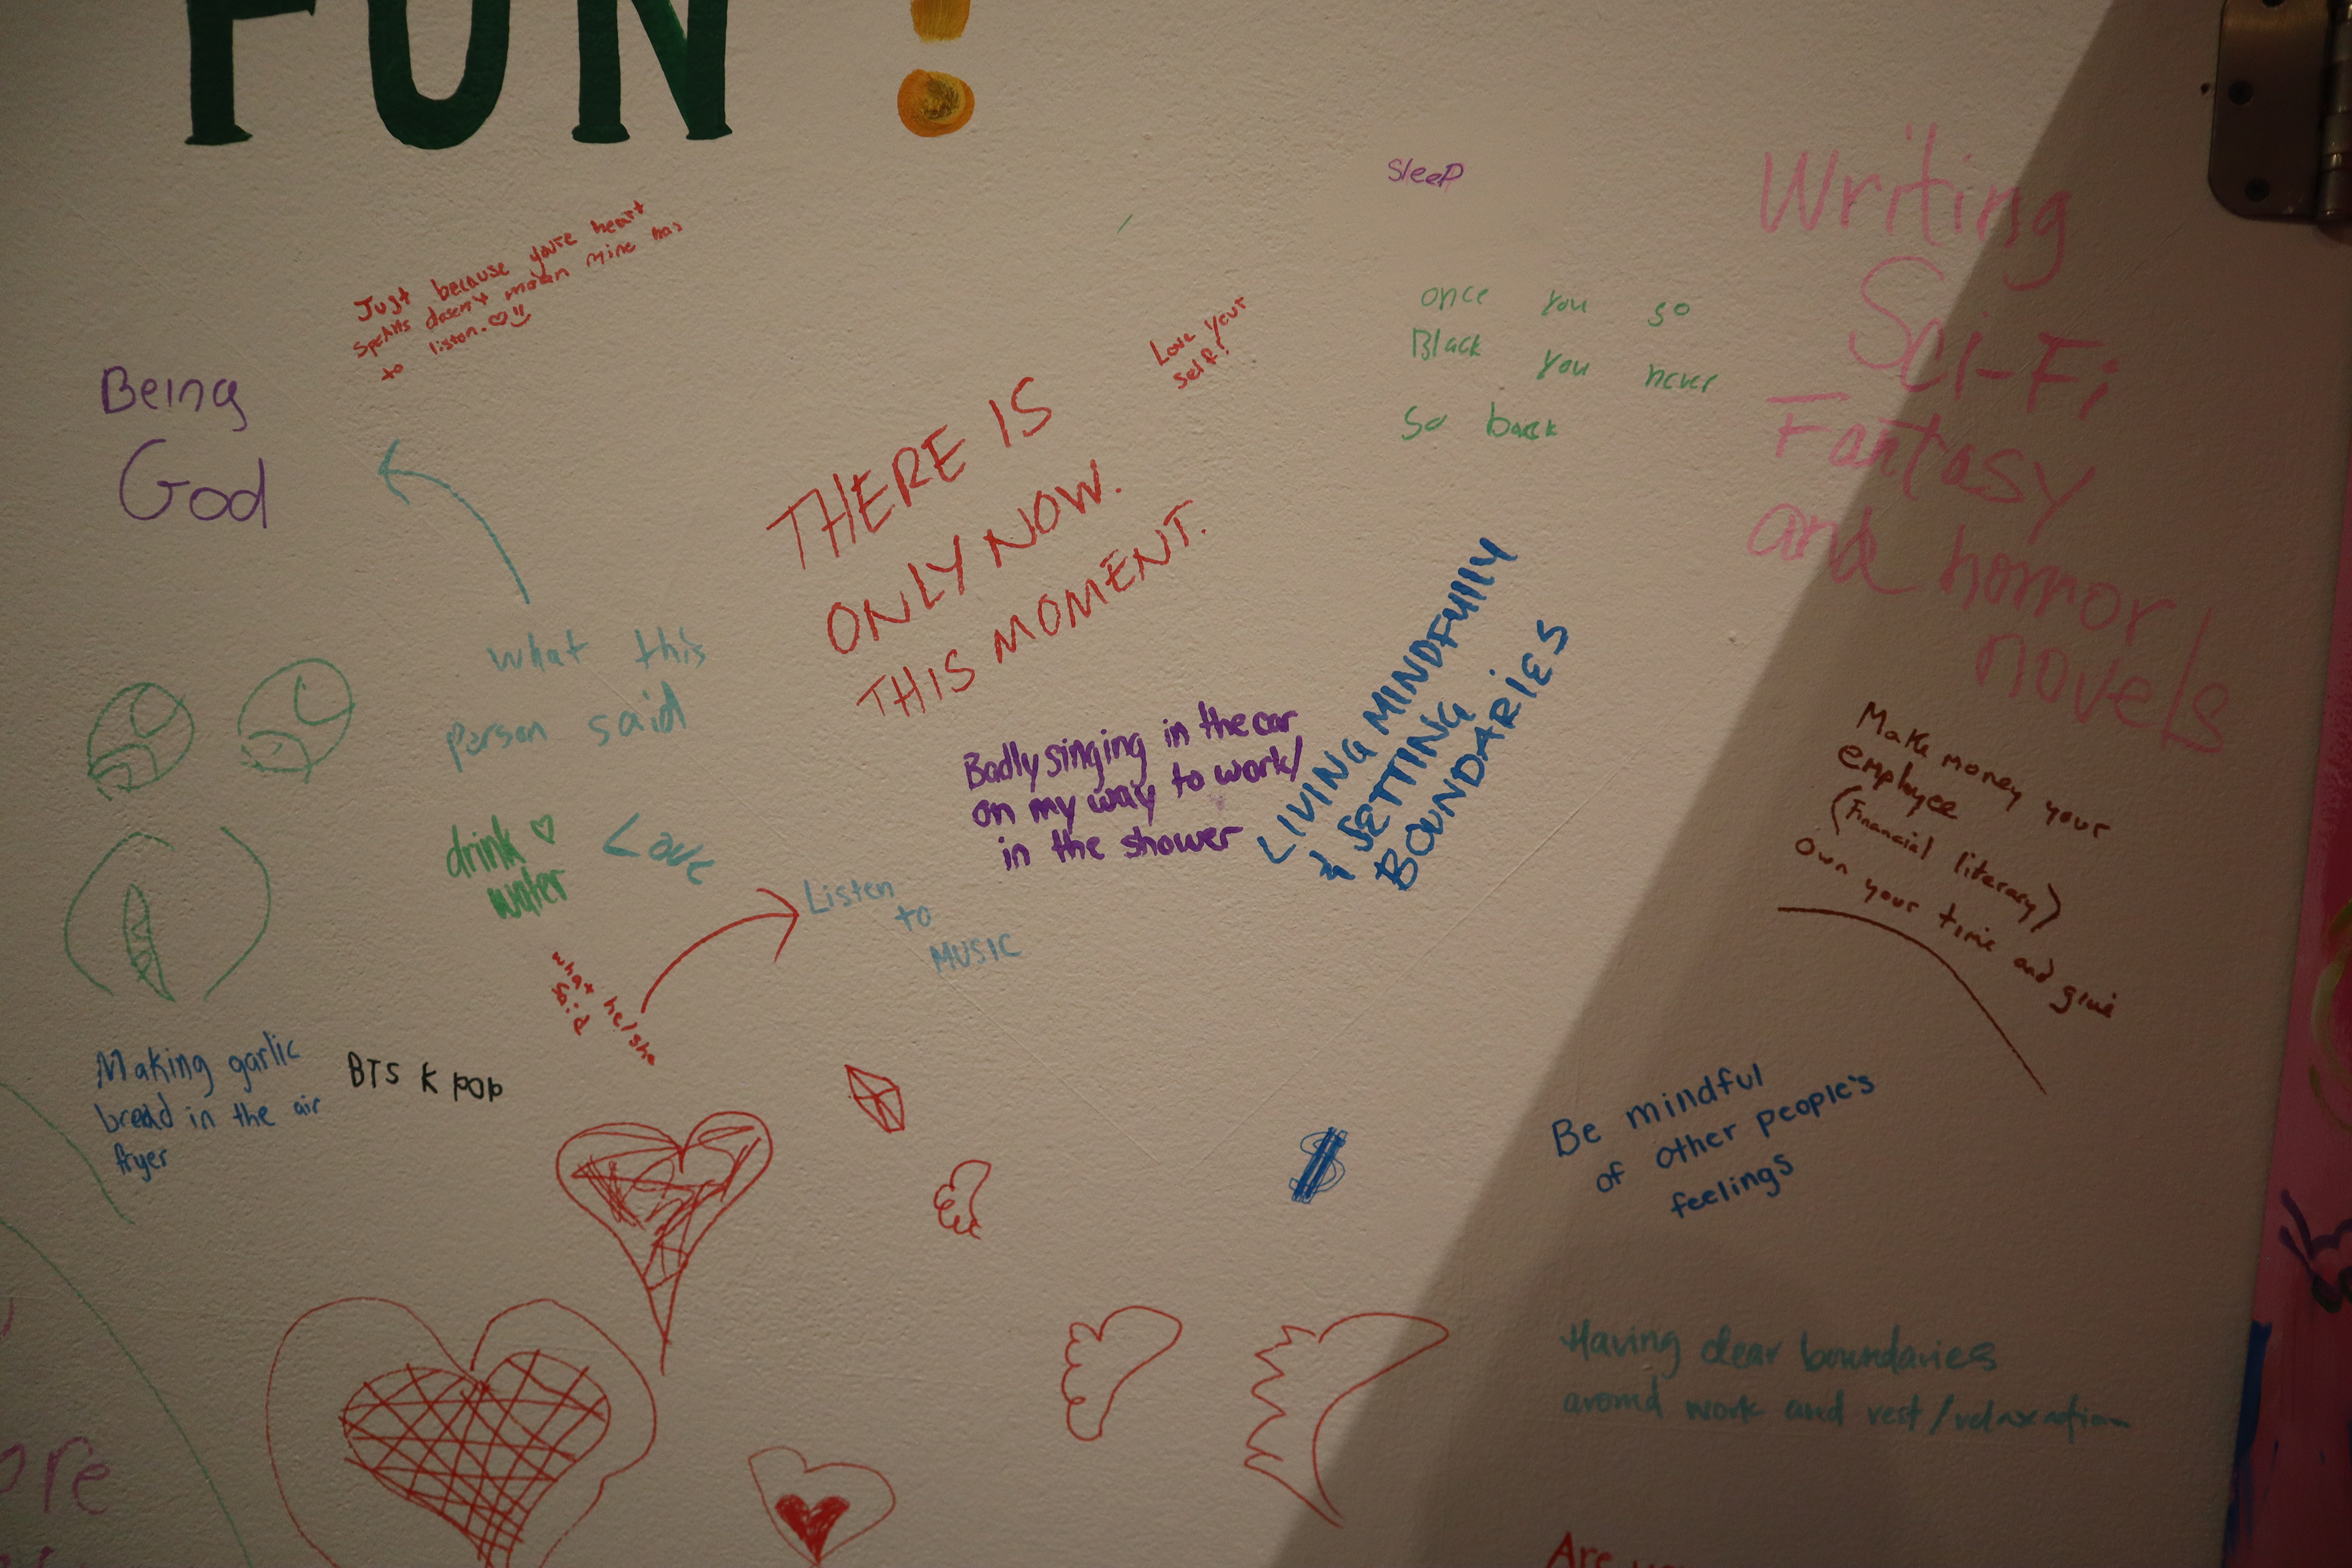 FUN!
Sleep
Just because you're heart
speaks doesn't mean mine has
to listen.
Being
God
Love Your
self!
once you go
Black you never
go back
Writing
Sci-Fi
Fantasy
and horror
novels
THERE IS
ONLY NOW.
THIS MOMENT.
what this
person said
LIVING MINDFULLY
& SETTING
BOUNDARIES
Badly singing in the car
on my way to work/
in the shower
Make money your
employee
(Financial literary)
own your time and give
drink
water
Love
Listen
to
MUSIC
what he/she
said
Making garlic
bread in the air
fryer
BTS K pop
$
Be mindful
of other people's
feelings
Having clear boundaries
around work and rest/relaxation
ore
Are